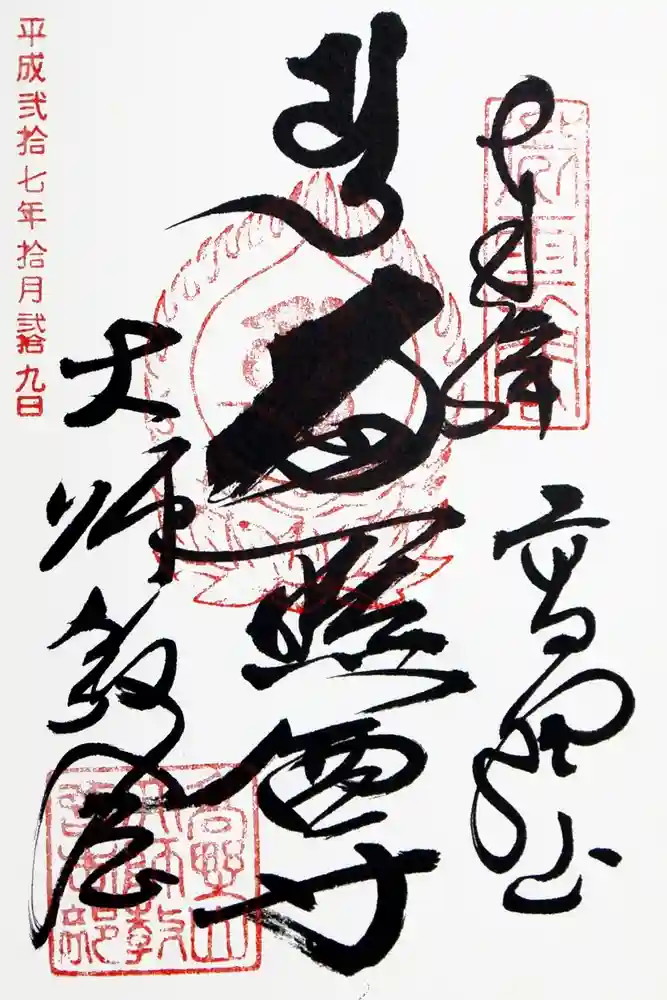 奉拝
高野山
遍照尊
大師教会
平成弐拾七年拾月弐拾九日
高野山
大師教